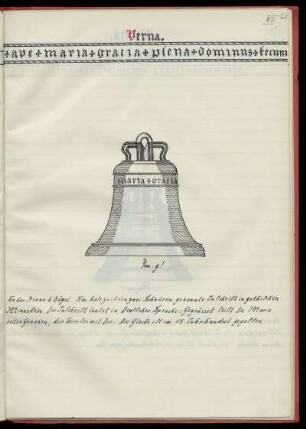 Verna.
+ ave + maria + gracia + plena + dominus + tecum
maria + gracia
6 Bügel. Am Halz zwischen zwei Schnüren genannte Inschrift in gothischen
Minuskeln. Die Inschrift lautet in Deutscher Sprache: Gegrüsset seist Du Maria
voller Gnaden, der Herr ist mit Dir. Die Glocke ist im 15. Jahrhundert gegossen